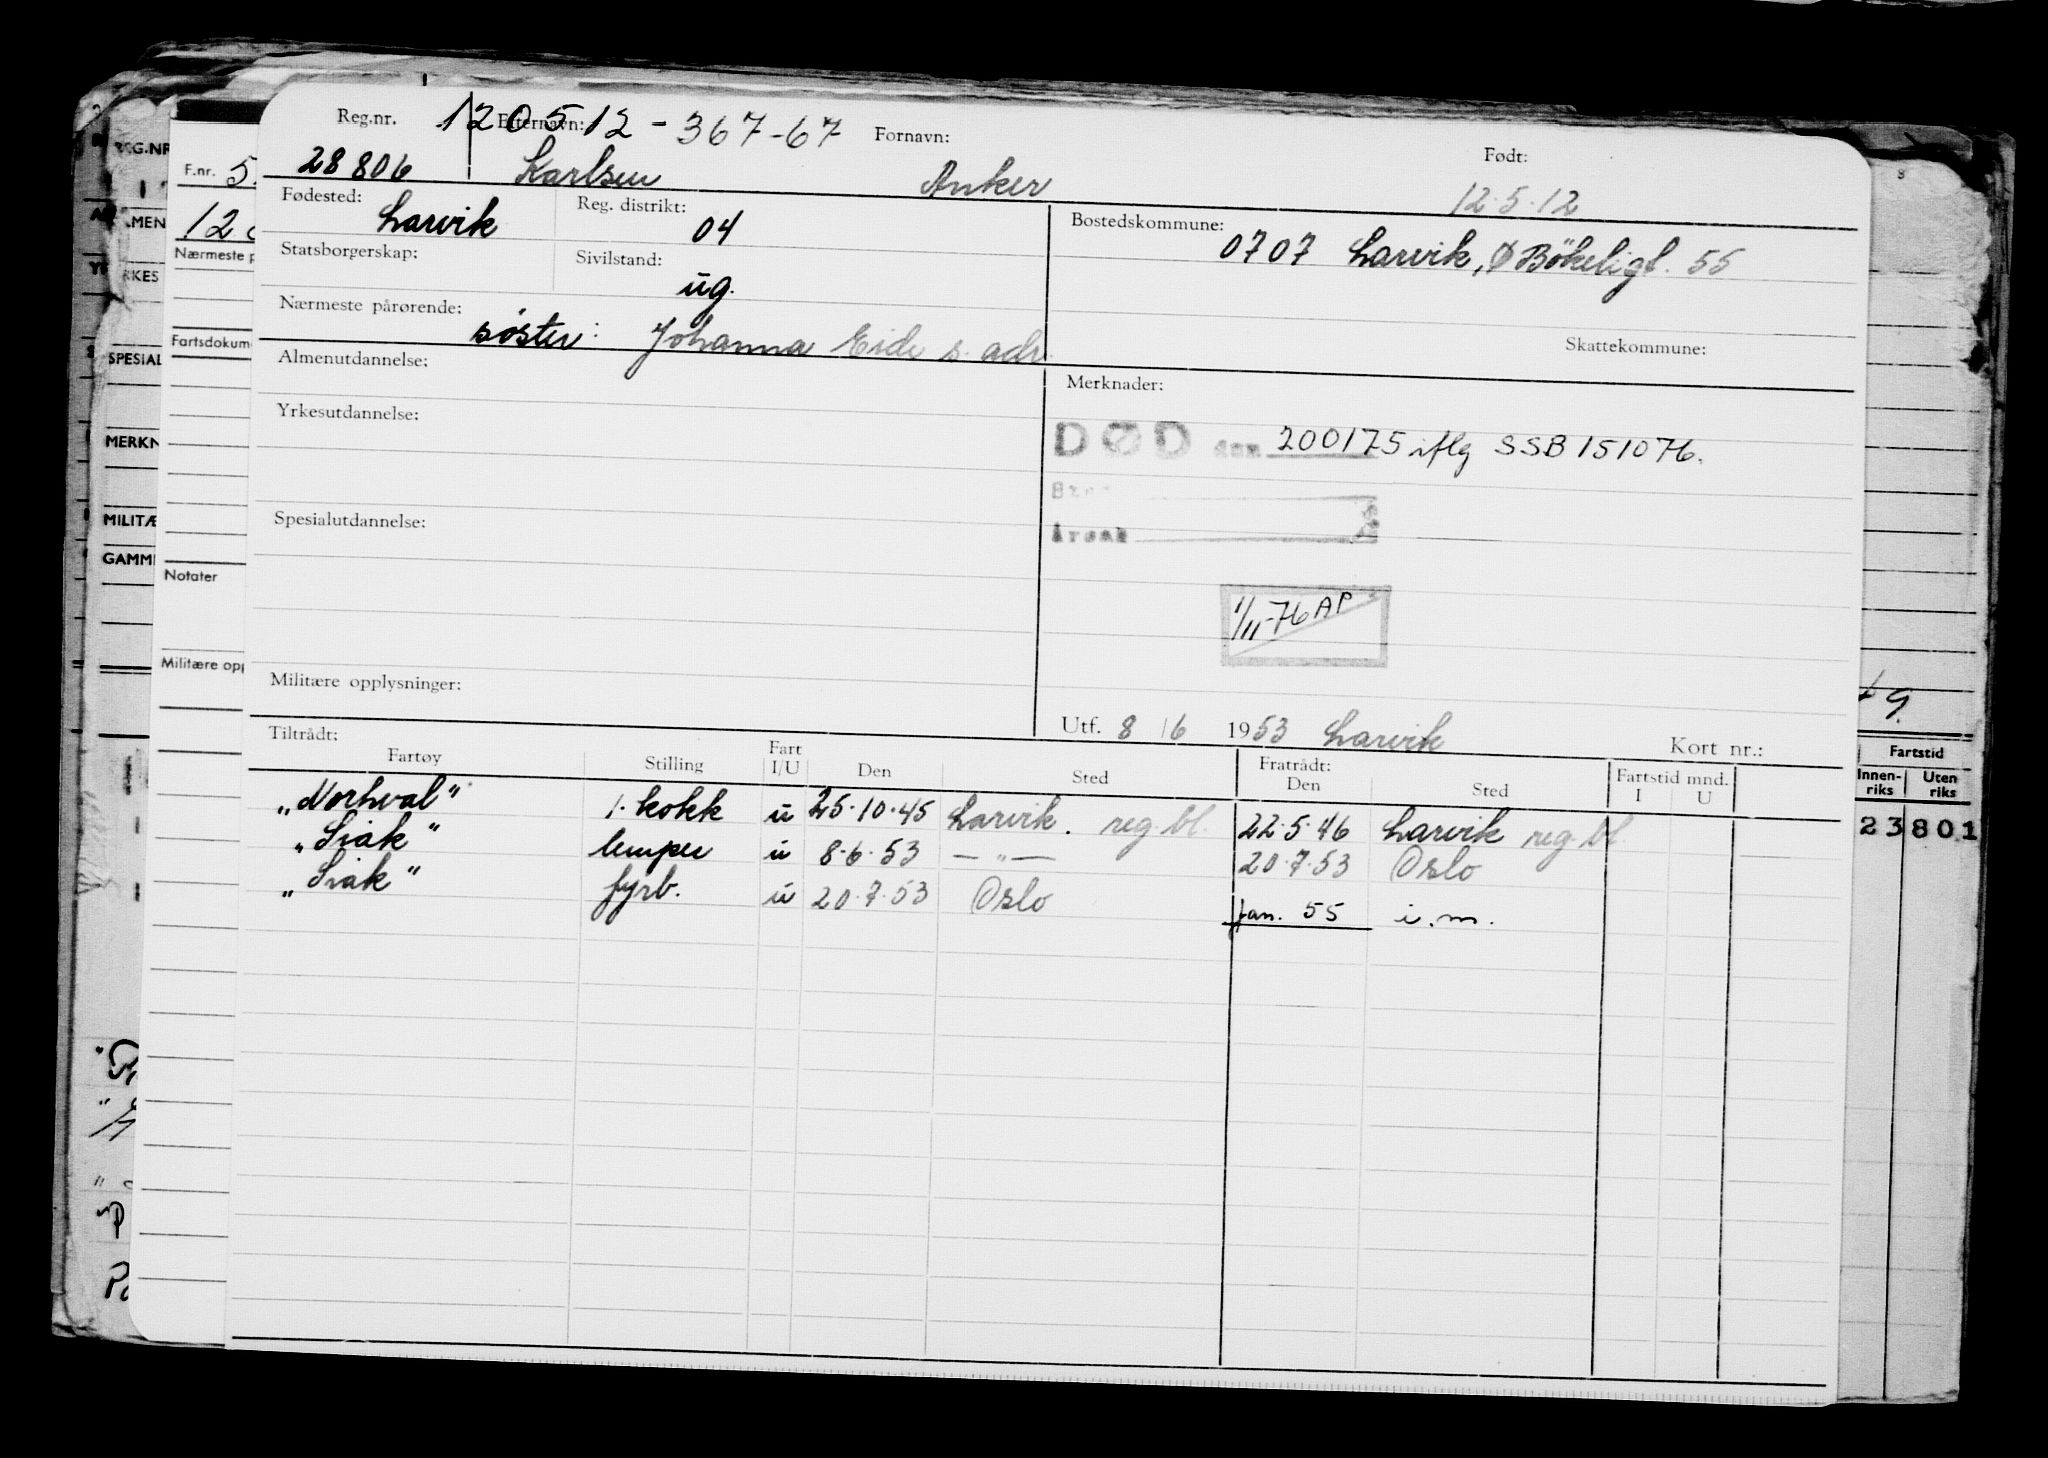 Reg.nr. Etternavn: 120512-367-67 Fornavn: Født:
28806 Karlsen Anker 12.5.12
Fødested: Larvik Reg. distrikt: 04 Bostedskommune: 0707 Larvik, Ø Bökeligt. 55
Statsborgerskap: Sivilstand: ug.
Nærmeste pårørende: søster: Johanna Eide s. adr.
Skattekommune:
Almenutdannelse: Merknader:
Yrkesutdannelse:
DØD den 200175 iflg SSB 151076.
Spesialutdannelse:
Årsak
1/11-76 AP
Militære opplysninger:
Utf. 8/6 1953 Larvik Kort nr.:
Tiltrådt: Fratrådt:
Fartøy Stilling Fart I/U Den Sted Den Sted Fartstid mnd. I U
"Norhval" 1. kokk u 25.10.45 Larvik. reg. bl. 22.5.46 Larvik reg. bl.
"Siak" lemper u 8.6.53 — " — 20.7.53 Oslo
"Siak" fyrb. u 20.7.53 Oslo Jan. 55 i.m.
REG.NR
F.nr. 5
Nærmeste p
Fartsdokum
SPESIAL
MERKN
MILITÆ
GAMM
Notater
Militære opp
Fartstid
Innen-
riks
Uten
riks
23801